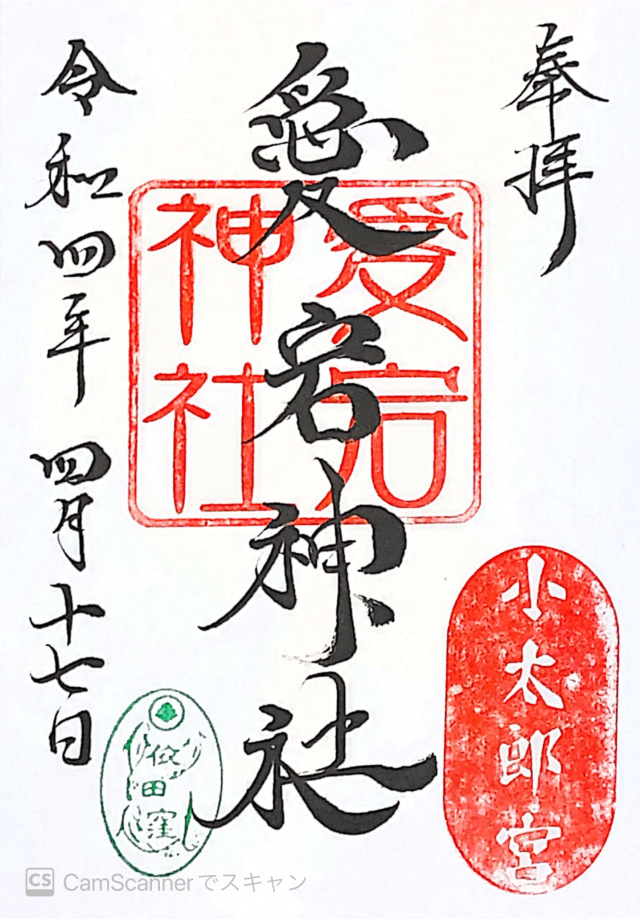 奉拝
愛宕神社
愛宕
神社
令和四年 四月十七日
小太郎宮
依田窪
CS CamScannerでスキャン